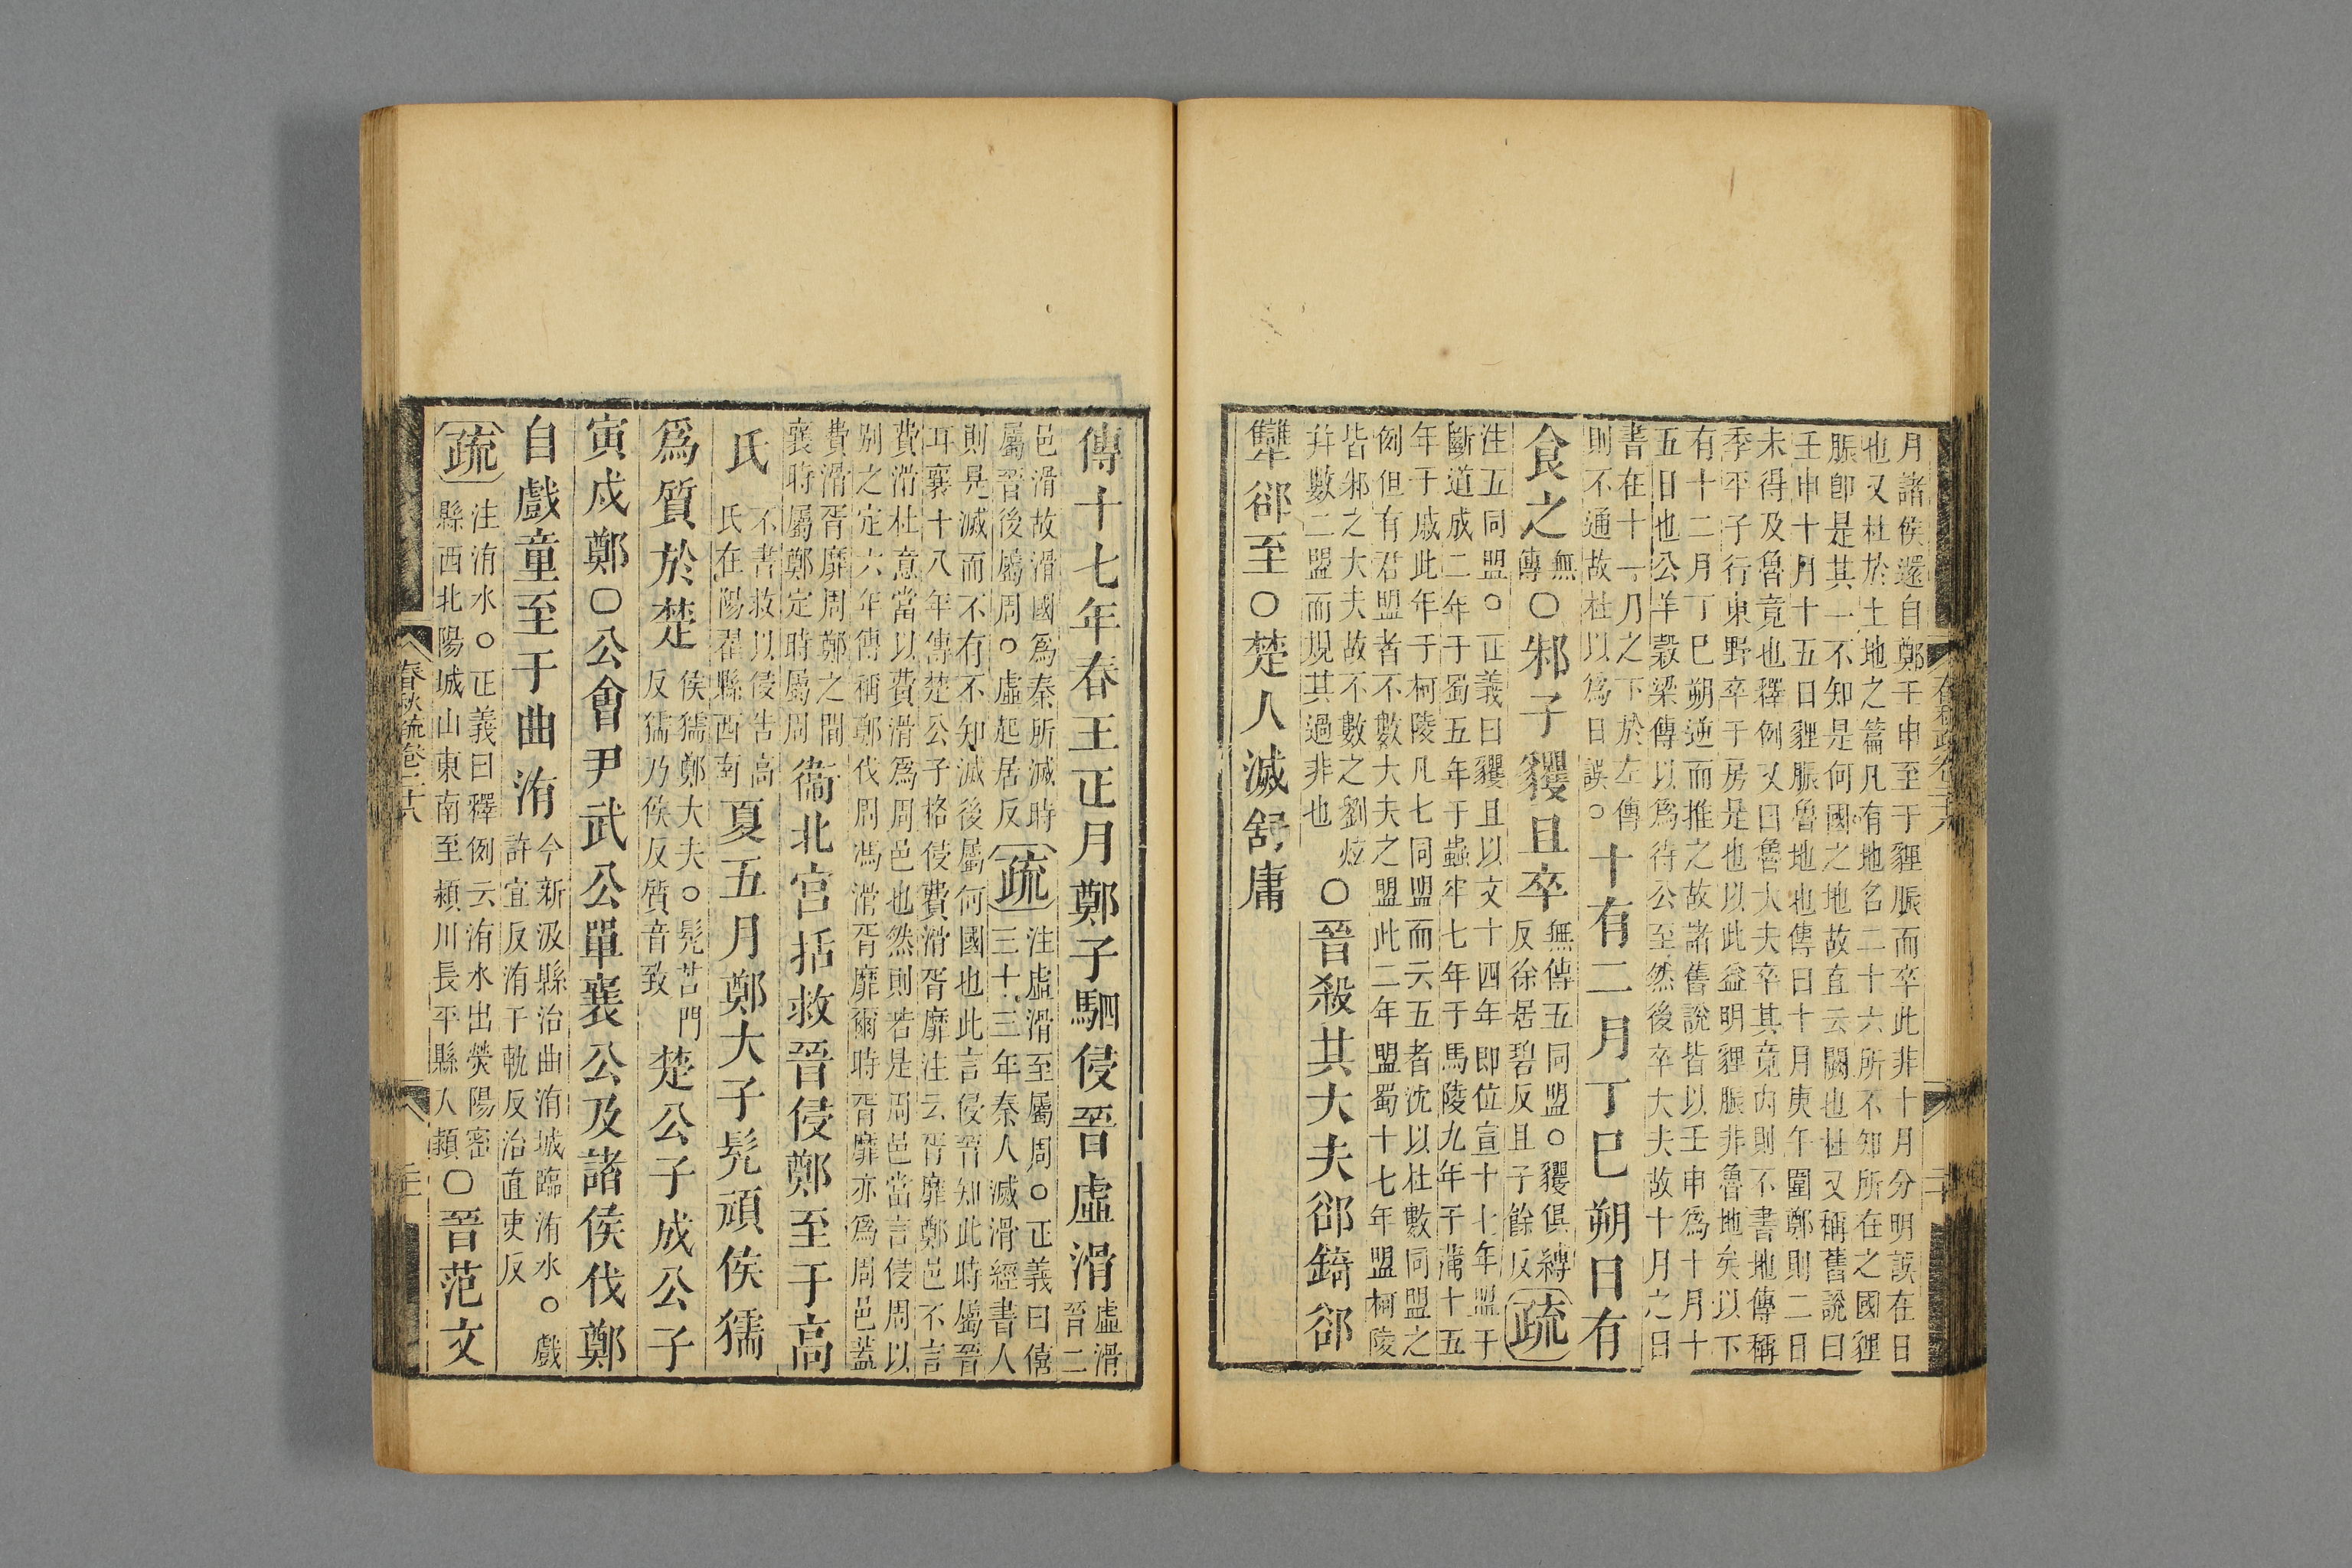 月諸侯還自鄭壬申至于貍脤而卒此非十月分明誤在日
也又杜於土地之篇凡有地名二十六所不知所在之國貍
脤卽是其一不知是何國之地故直云闕也杜又稱舊說曰
壬申十月十五日貍脤魯地也傳曰十月庚午圍鄭則二日
未得及魯竟也釋例又曰魯大夫卒其竟內則不書地傳稱
季平子行東野卒于房是也以此益明貍脤非魯地矣以下
有十二月丁巳朔逆而推之故諸舊說皆以壬申爲十月十
五日也公羊穀梁傳以爲待公至然後卒大夫故十月之日
書在十一月之下於左傳
則不通故杜以爲日誤○
十有二月丁巳朔日有
食之
無
傳
○邾子貜且卒
無傳五同盟○貜俱縛
反徐居碧反且子餘反
疏
注五同盟○正義曰貜且以文十四年即位宣十七年盟于
斷道成二年于蜀五年于蟲牢七年于馬陵九年于蒲十五
年于戚此年于柯陵凡七同盟而云五者沈以杜數同盟之
例但有君盟者不數大夫之盟此二年盟蜀十七年盟柯陵
皆邾之大夫故不數之劉炫
并數二盟而規其過非也
○晉殺其大夫郤錡郤
犫郤至○楚人滅舒庸
春秋疏卷二十八
傳十七年春王正月鄭子駟侵晉虛滑
虛滑
晉二
邑滑故滑國爲秦所滅時
屬晉後屬周○虛起居反
疏
注虛滑至屬周○正義曰僖
三十三年秦人滅滑經書人
則是滅而不有不知滅後屬何國也此言侵晉知此時屬晉
耳襄十八年傳楚公子格侵費滑胥靡注云胥靡鄭邑不言
費滑杜意當以費滑爲周邑也然則若是周邑當言侵周以
別之定六年傳稱鄭伐周馮滑胥靡爾時胥靡亦爲周邑蓋
費滑胥靡周鄭之間
襄時屬鄭定時屬周
衞北宮括救晉侵鄭至于高
氏
不書救以侵告高
氏在陽翟縣西南
夏五月鄭大子髡頑侯獳
爲質於楚
侯獳鄭大夫○髡苦門
反獳乃侯反質音致
楚公子成公子
寅戍鄭○公會尹武公單襄公及諸侯伐鄭
自戲童至于曲洧
今新汲縣治曲洧城臨洧水○戲
許宜反洧于軌反治直吏反
疏
注洧水○正義曰釋例云洧水出熒陽密
縣西北陽城山東南至潁川長平縣入潁
○晉范文
春秋疏卷二十八